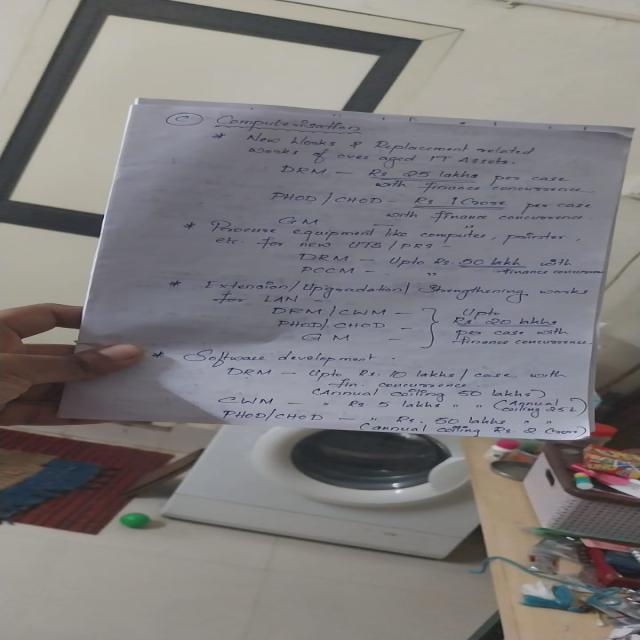 Computerisation
* New Works & Replacement related
works of over aged IT Assets.
DRM — Rs 25 lakhs per case
with finance concurrence
PHOD/CHOD — Rs 1 Crore per case
with finance concurrence
GM — "
* Procure equipment like computer, printer,
etc. for new UTS/PRS.
DRM — Upto Rs. 50 lakh with
PCCM — " finance concurrence
* Extension/Upgradation/Strengthening works
for LAN
DRM/CWM — Upto
PHOD/CHOD — Rs 20 lakhs
GM — per case with
finance concurrence
* Software development.
DRM — Upto Rs. 10 lakhs/case with
fin. concurrence
(Annual ceiling 50 lakhs)
CWM — " Rs 5 lakhs " " (Annual
ceiling 25L)
PHOD/CHOD — " Rs. 50 lakhs "
(Annual ceiling Rs 2 Crore)